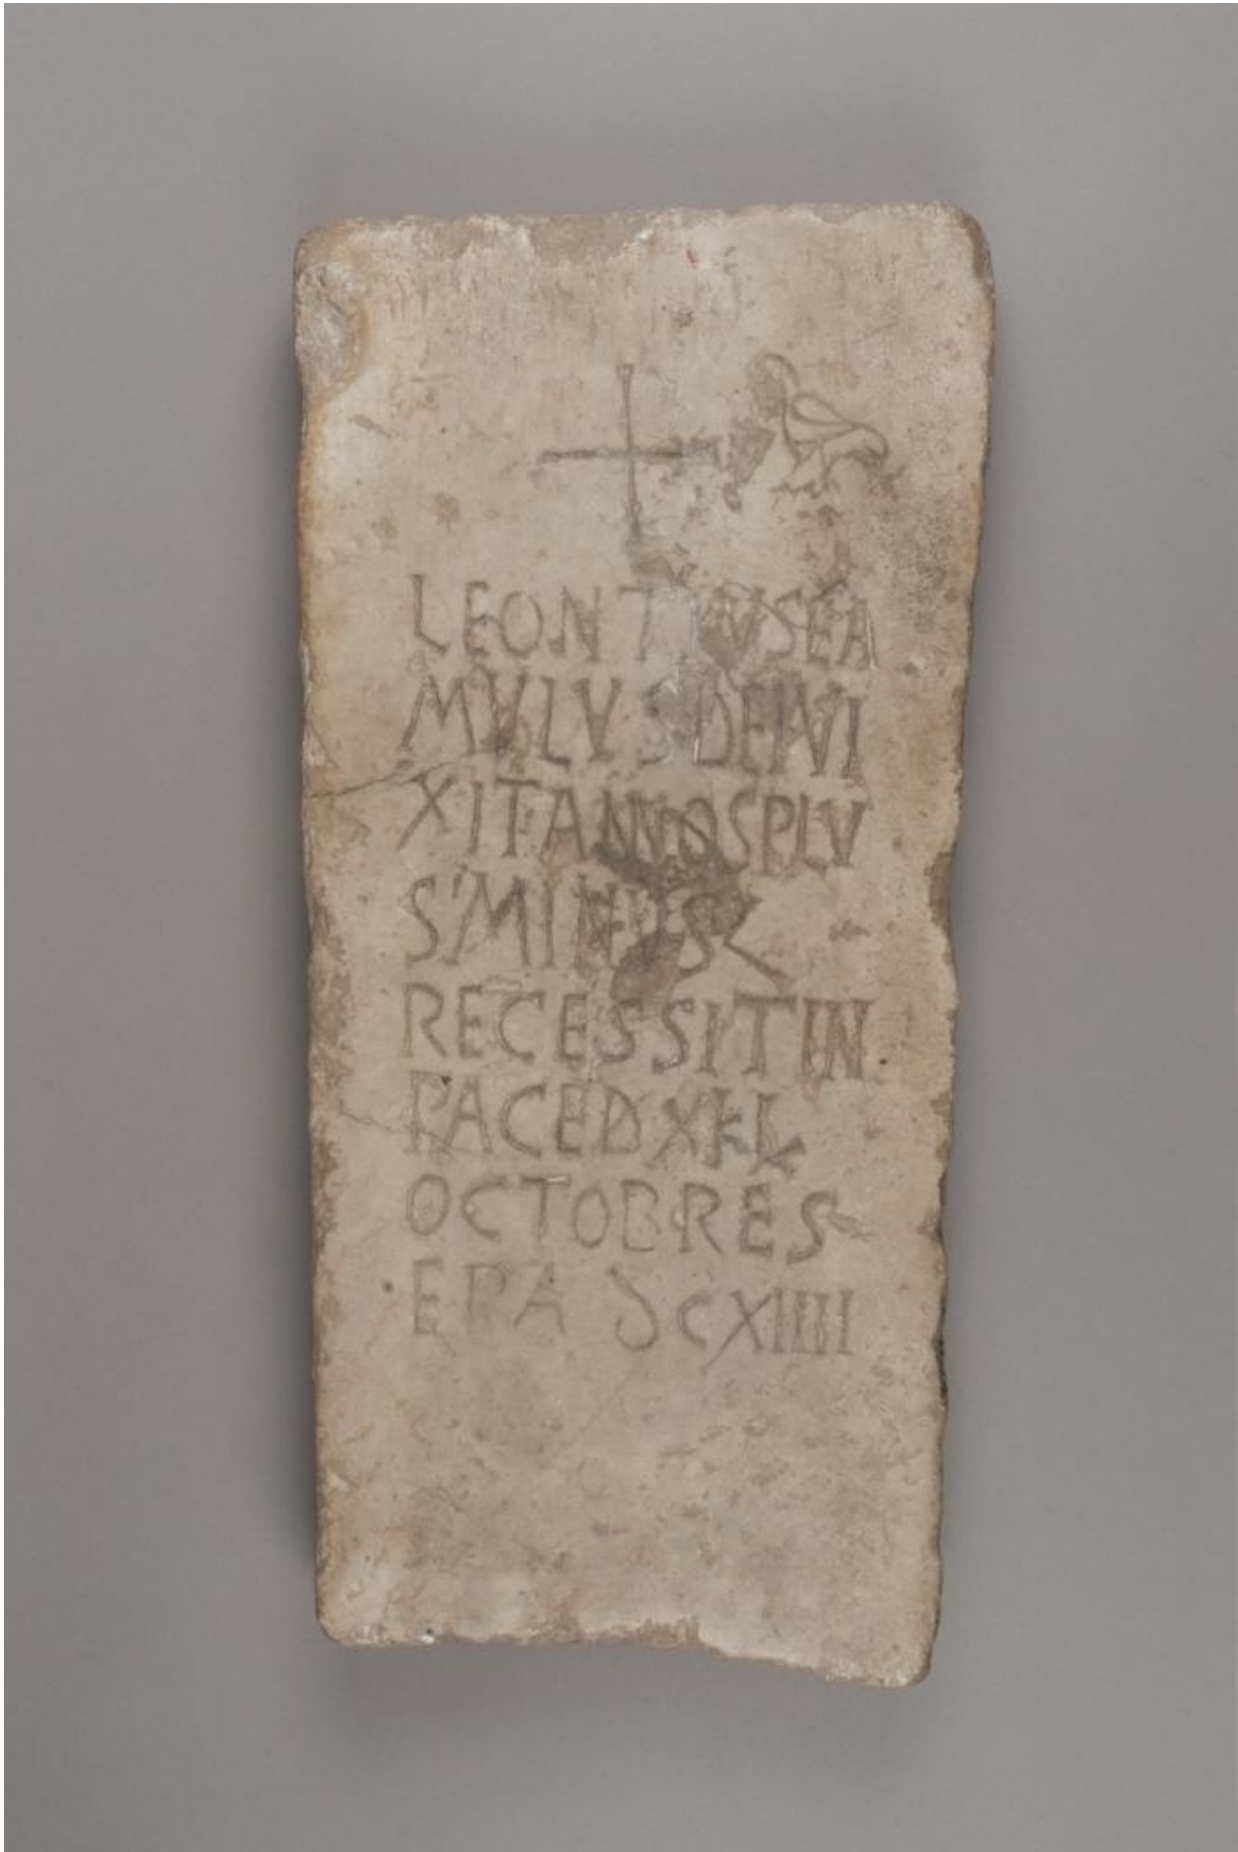 LEONTIVSFA
MVLVSDEIVI
XITANNOSPLV
SMINVSL
RECESSITIN
PACEDXKL
OCTOBRES
ERA DCXIIII